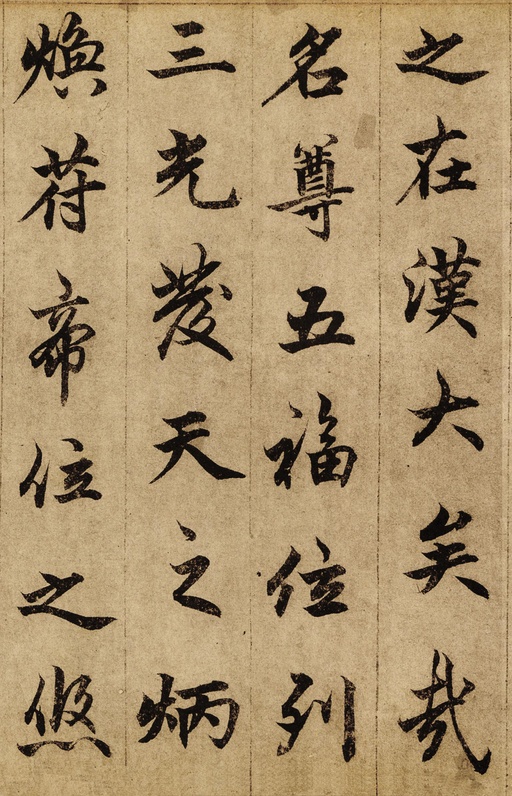 之在漢大矣哉
名尊五福位列
三光發天之炳
煥荷帝位之悠